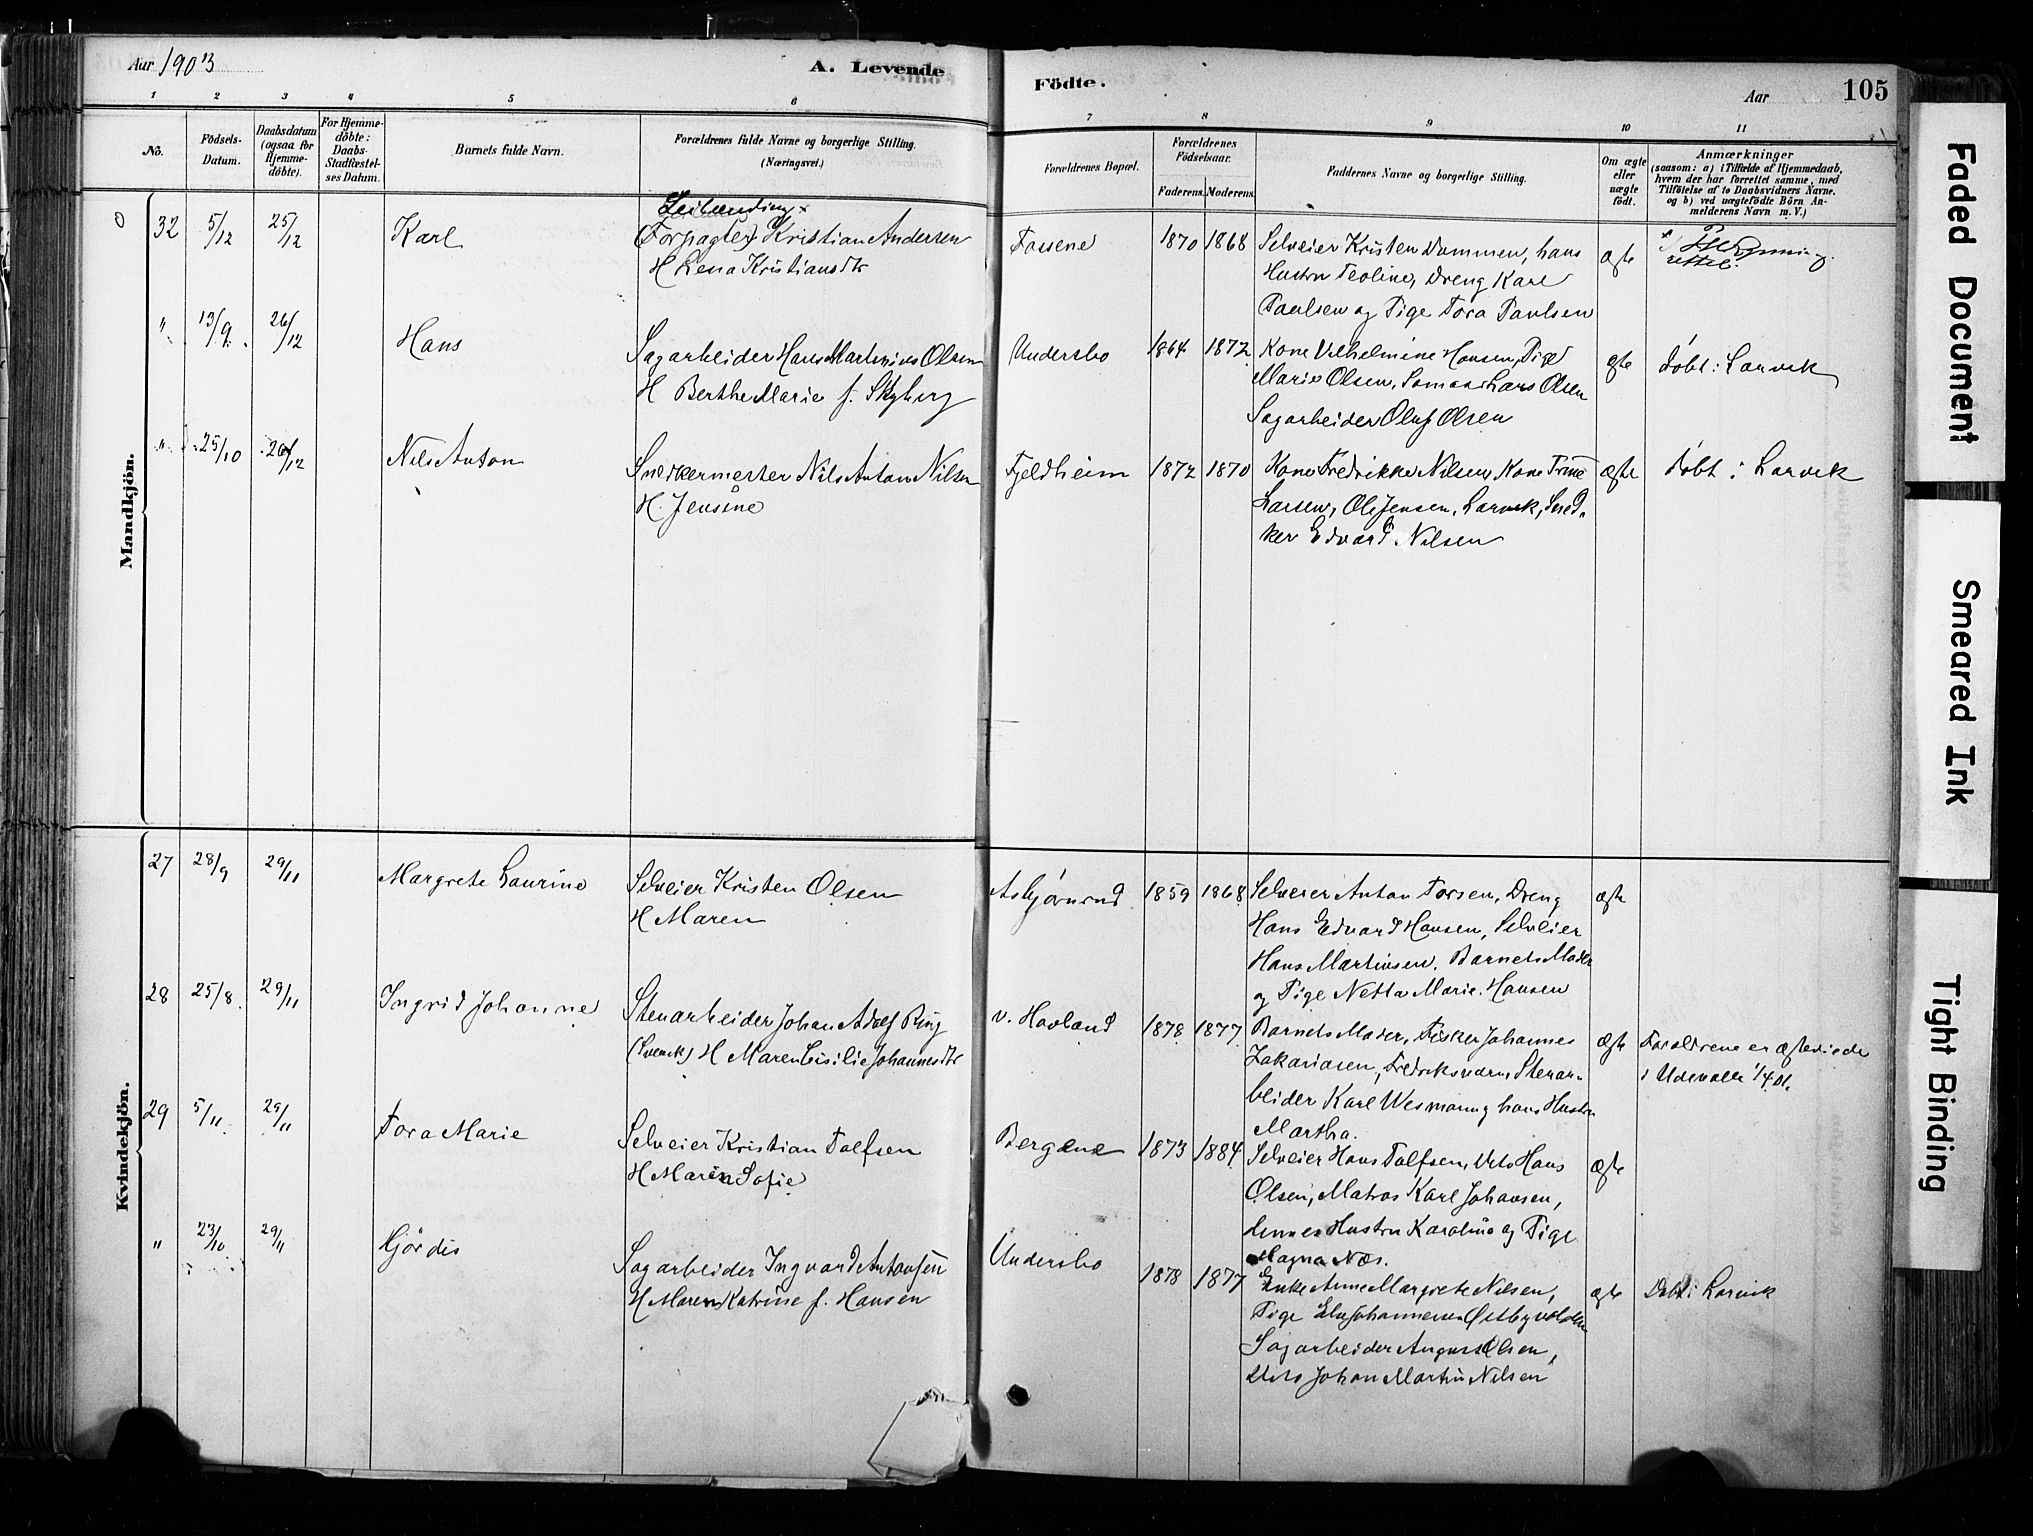 Aar 1903
A. Levende
Födte.
Aar
105
1 2 3 4 5 6 7 8 9 10 11
No.
Födsels-
Datum.
Daabsdatum
(ogsaa for
Hjemme-
döbte).
For Hjemme-
döbte:
Daabs-
Stadfæstel-
ses Datum.
Barnets fulde Navn.
Forældrenes fulde Navne og borgerlige Stilling.
(Næringsvei.)
Forældrenes Bopæl.
Forældrenes
Födselsaar.
Faderens. Moderens.
Faddernes Navne og borgerlige Stilling.
Om ægte
eller
uægte
födt.
Anmærkninger
(saasom: a) i Tilfælde af Hjemmedaab,
hvem der har forrettet samme, med
Tilföielse af to Daabsvidners Navne,
og b) ved uægtefödte Börn An-
melderens Navn m. V.)
Mandkjön.
32 5/12 25/12 Karl
Leilænding
(Forpagter) Kristian Andersen
H Lena Kristiansdtr
Fossene 1870 1868
Selveier Kristen Dammen, hans
Hustru Teoline, Dreng Karl
Paulsen og Pige Tora Paulsen
ægte
rettet.
" 13/9. 26/12 Hans
Sagarbeider Hans Martinius Olsen
H Berthe Marie f. Skyberg
Undersbo 1864 1872
Kone Vilhelmine Hansen, Pige
Marie Olsen, Sømand Lars Olsen
Sagarbeider Oluf Olsen
ægte
Døbt i Larvik
" 25/10 26/12 Nils Anton
Snedkermester Nils Anton Nilsen
H. Jensine
Fjeldheim 1872 1870
Kone Fredrikke Nilsen, Kone Trine
Larsen, Ole Jensen, Larvik, Sned-
ker Edvard Nilsen
ægte
Døbt i Larvik
Kvindekjön.
27 28/9 29/11 Margrete Laurine
Selveier Kristen Olsen
H Maren
Asbjørnrud 1859 1868
Selveier Anton Torsen, Dreng
Hans Edvard Hansen, Selveier
Hans Martinsen. Barnets Moder
og Pige Netta Marie Hansen
ægte
28 25/8. 29/11 Ingrid Johanne
Stenarbeider Johan Adolf Ring
(Svensk) H Maren Cicilie Johannesdtr
v. Havland 1878 1877
Barnets Moder, Fisker Johannes
Zakariasen, Fredriksværn, Stenar-
beider Karl Wesmann og hans Hustru
Martha.
ægte
Forældrene er ægteviede
i Udevalla 1/4 01.
29 5/11. 29/11 Tora Marie
Selveier Kristian Tolfsen
H Maren Sofie
Bergene 1873 1884
Selveier Hans Tolfsen, Dito Hans
Olsen, Matros Karl Johansen,
dennes Hustru Karoline og Pige
Magna Næs.
ægte
" 23/10 29/11 Hjørdis
Sagarbeider Ingvard Antonsen
H Maren Katrine f. Hansen
Undersbo 1878 1877
Enke Anne Margrete Nilsen,
Pige Else Johannesen Østbyvolden
Sagarbeider August Olsen,
Dito Johan Martin Nilsen
ægte
Døbt i Larvik
Faded Document
Smeared Ink
Tight Binding